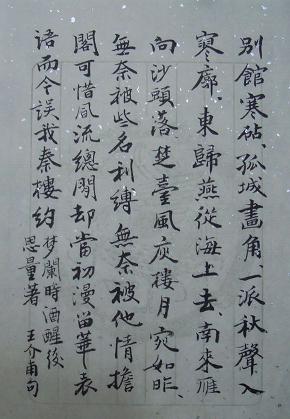 別館寒砧、孤城畫角、一派秋聲入
寥廓、東歸燕從海上去、南來雁
向沙頭落、楚臺風、庾樓月、宛如昨、
無奈被些名利縛、無奈被他情擔
閣、可惜風流總閒却、當初漫留華表
語、而今誤我秦樓約、夢闌時、酒醒後
思量著 王介甫句